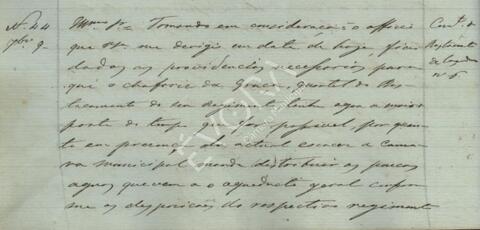 Nº 44
7bro 9
Illmo Sr = Tomando em consideração o officio
que VSª me dirigio em data de hoje, ficão
dadas as providencias necessarias para
que o chafariz da Graça, quartel do Des-
tacamento do seu Regimento tenha agua a maior
parte do tempo que for possivel, por quan-
to em presença da actual escacez a Cama-
ra Municipal manda distribuir as poucas
aguas que vem a o aqueducto geral confor-
me as desposicões do respectivo regimento
Regimento
de Caçadores
nº 5
ÉVORA